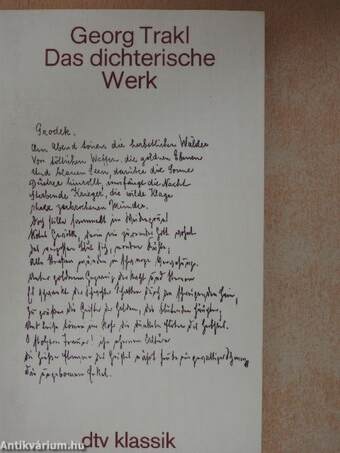 Georg Trakl
Das dichterische
Werk
Grodek.
Am Abend tönen die herbstlichen Wälder
Von tödlichen Waffen, die goldnen Ebenen
Und blauen Seen, darüber die Sonne
Düstrer hinrollt, umfängt die Nacht
Sterbende Krieger, die wilde Klage
Ihrer zerbrochenen Münder.
Doch stille sammelt im Weidengrund
Rotes Gewölk, darin ein zürnender Gott wohnt
Das vergossne Blut sich, mondne Kühle;
Alle Straßen münden in schwarze Verwesung.
Unter goldnem Gezweig der Nacht und Sternen
Es schwankt der Schwester Schatten durch den schweigenden Hain,
Zu grüßen die Geister der Helden, die blutenden Häupter;
Und leise tönen im Rohr die dunkeln Flöten des Herbstes.
O stolzere Trauer! ihr ehernen Altäre
Die heiße Flamme des Geistes nährt heute ein gewaltiger Schmerz,
Die ungebornen Enkel.
dtv klassik
Antikvárium.hu